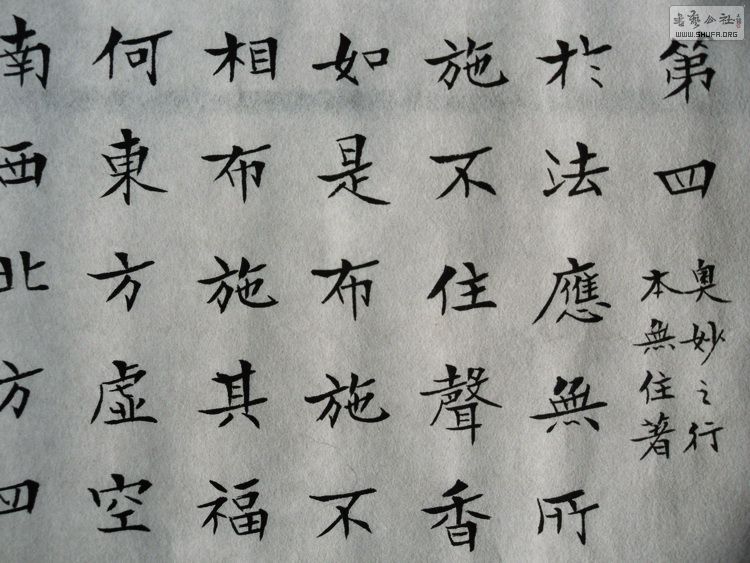 第四
奥妙之行
本無住著
於法應無所
施不住聲香
如是布施不
相布施其福
何東方虛空
南西北方四
書藝公社
WWW.SHUFA.ORG